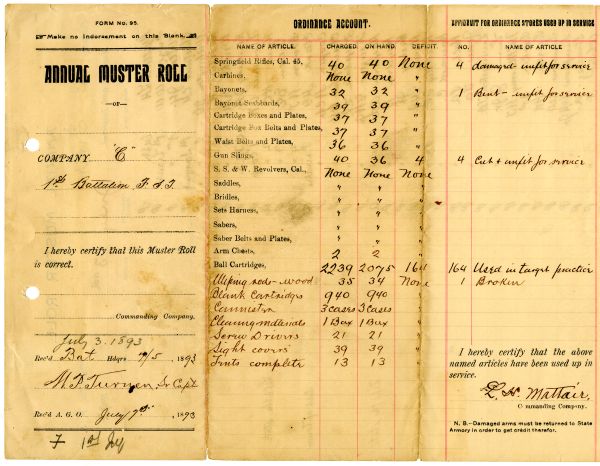 FORM No. 95.
Make no Indorsement on this Blank.
ANNUAL MUSTER ROLL
—OF—
COMPANY "C"
1st Battalion F. S. T.
I hereby certify that this Muster Roll
is correct.
Commanding Company.
July 3. 1893
Rec'd Bat Hdqrs 7/5, 1893
Sr Capt
Rec'd A. G. O. July 7th, 1893
7 1st
ORDINANCE ACCOUNT.
NAME OF ARTICLE. CHARGED. ON HAND. DEFICIT.
Springfield Rifles, Cal. 45, 40 40 None
Carbines, None None "
Bayonets, 32 32 "
Bayonet Scabbards, 39 39 "
Cartridge Boxes and Plates, 37 37 "
Cartridge Box Belts and Plates, 37 37 "
Waist Belts and Plates, 36 36 "
Gun Slings, 40 36 4
S. & W. Revolvers, Cal., None None None
Saddles, " " "
Bridles, " " "
Sets Harness, " " "
Sabers, " " "
Saber Belts and Plates, " " "
Arm Chests, 2 2 "
Ball Cartridges, 2239 2075 164
Wiping rods - wood 35 34 None
Blank Cartridges 940 940 "
Cannister 3 cases 3 cases "
Cleaning materials 1 Box 1 Box "
Screw Drivers 21 21 "
Sight covers 39 39 "
Tents complete 13 13 "
AFFIDAVIT FOR ORDINANCE STORES USED UP IN SERVICE
NO. NAME OF ARTICLE
4 damaged - unfit for service
1 Bent - unfit for service
4 Cut & unfit for service
164 Used in target practice
1 Broken
I hereby certify that the above
named articles have been used up in
service.
Mattair,
Commanding Company.
N. B.—Damaged arms must be returned to State
Armory in order to get credit therefor.